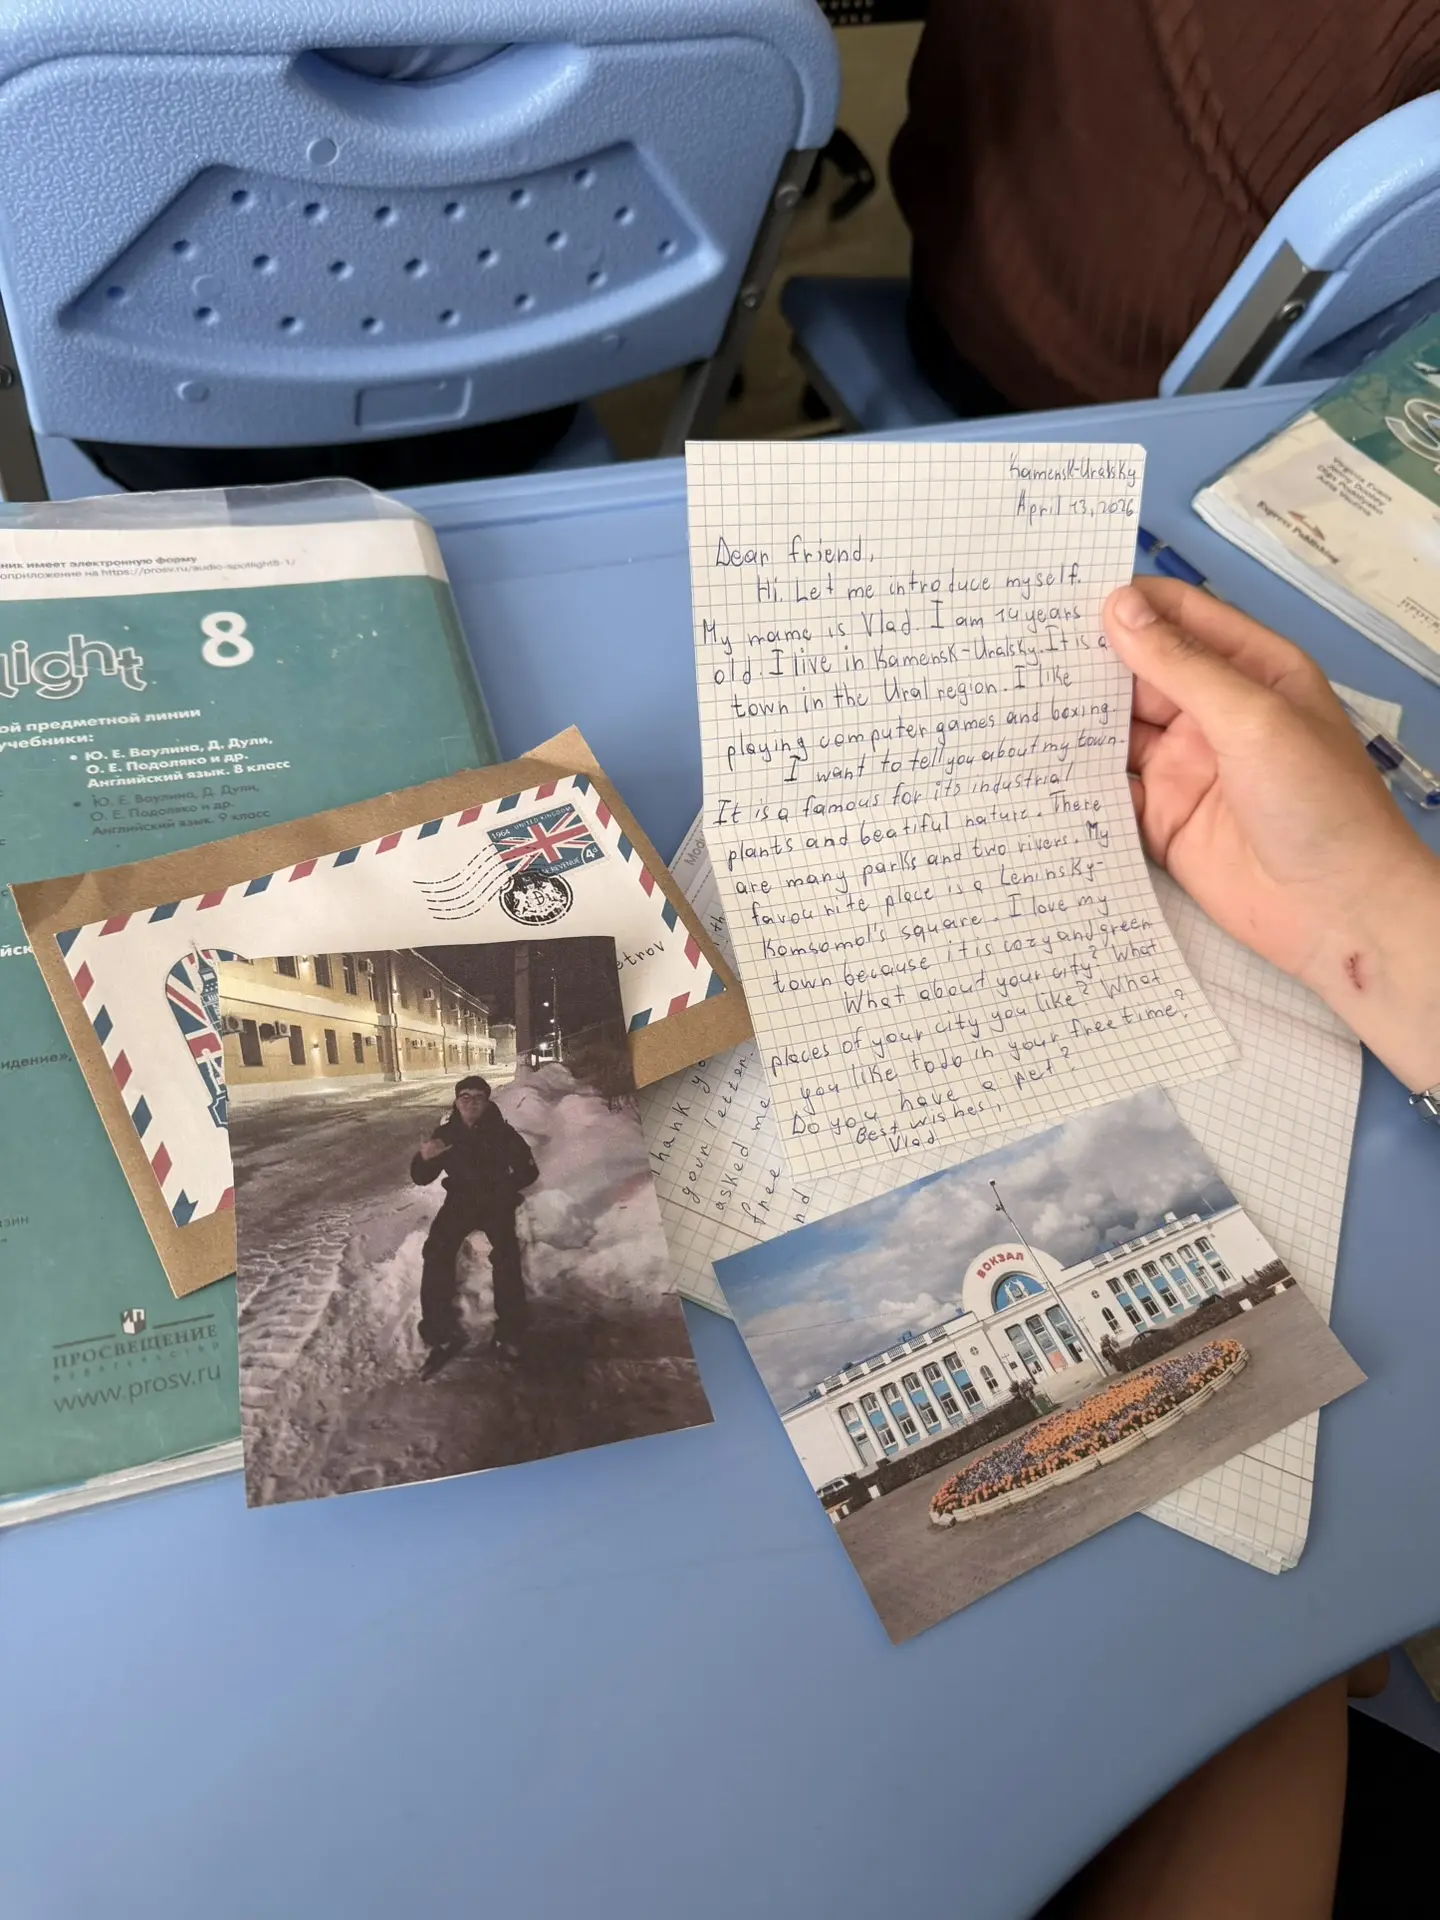 ник имеет электронную форму
оприложение на https://prosv.ru/audio-spotlight8-1/
light 8
ой предметной линии
учебники:
• Ю. Е. Ваулина, Д. Дули,
О. Е. Подоляко и др.
Английский язык. 8 класс
• Ю. Е. Ваулина, Д. Дули,
О. Е. Подоляко и др.
Английский язык. 9 класс
ПРОСВЕЩЕНИЕ
ИЗДАТЕЛЬСТВО
www.prosv.ru
1964 UNITED KINGDOM
REVENUE 4d
etrov
Kamensk-Uralsky
April 13, 2026
Dear friend,
Hi. Let me introduce myself.
My name is Vlad. I am 14 years
old. I live in Kamensk-Uralsky. It is a
town in the Ural region. I like
playing computer games and boxing.
I want to tell you about my town.
It is a famous for its industrial
plants and beatiful nature. There
are many parks and two rivers. My
favounite place is a Leninsky-
Komsomol's square. I love my
town because it is cozy and green
What about your city? What
places of your city you like? What
you like to do in your free time?
Do you have a pet?
Best wishes,
Vlad
hank yo
your letter.
asked me
free
nd
ВОКЗАЛ
Virginia Evans
Jenny Dooley
Olga Podolyako
Julia Vaulina
Express Publishing